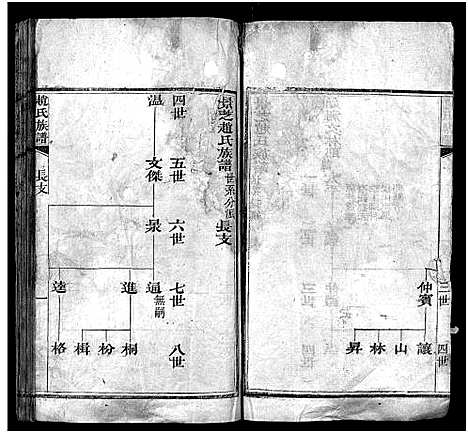 三世
四世
仲賓
讓
山
林
昇
趙氏族譜 世系分圖 長支
四世
五世
六世
七世
八世
溫
文傑
泉
通 無嗣
進
逵
桐
枌
楫
格
趙氏族譜
長支